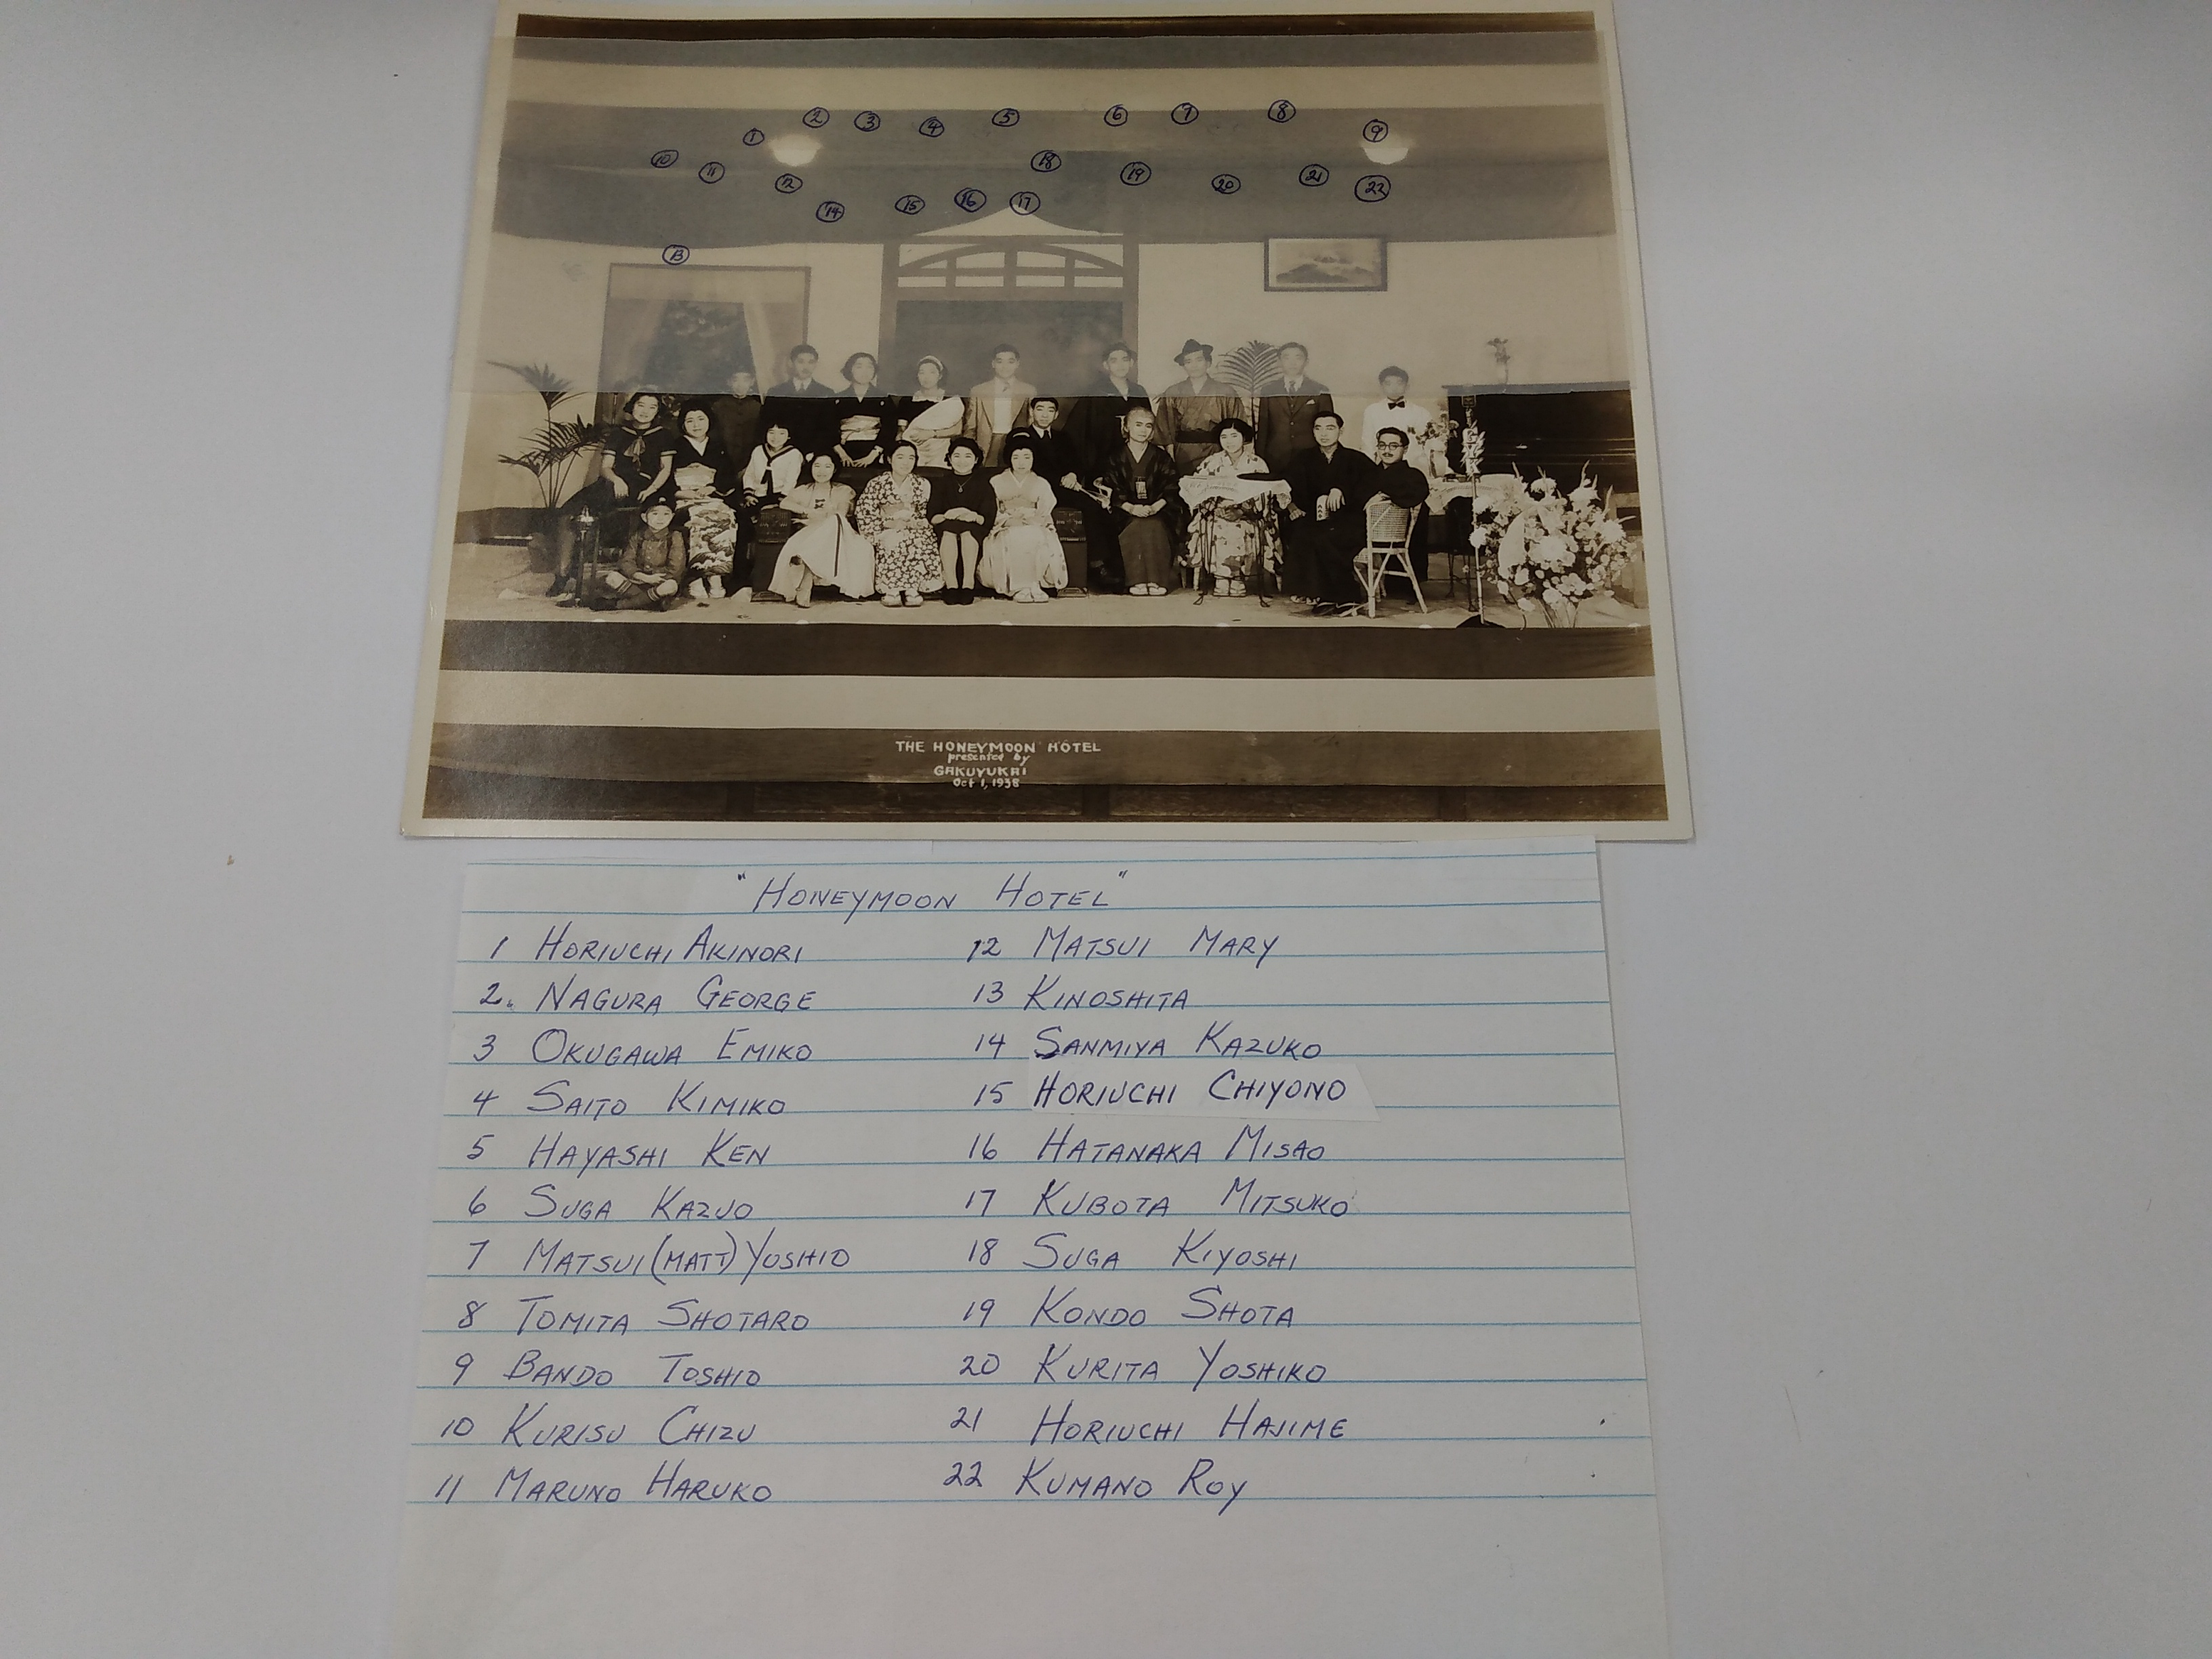 1 2 3 4 5 6 7 8 9
10 11 12 18 19 20 21 22
14 15 16 17
13
THE HONEYMOON HOTEL
presented by
GAKUYUKAI
Oct 1, 1938
"HONEYMOON HOTEL"
1 HORIUCHI AKINORI
2. NAGURA GEORGE
3 OKUGAWA EMIKO
4 SAITO KIMIKO
5 HAYASHI KEN
6 SUGA KAZUO
7 MATSUI (MATT) YOSHIO
8 TOMITA SHOTARO
9 BANDO TOSHIO
10 KURISU CHIZU
11 MARUNO HARUKO
12 MATSUI MARY
13 KINOSHITA
14 SANMIYA KAZUKO
15 HORIUCHI CHIYONO
16 HATANAKA MISAO
17 KUBOTA MITSUKO
18 SUGA KIYOSHI
19 KONDO SHOTA
20 KURITA YOSHIKO
21 HORIUCHI HAJIME
22 KUMANO ROY